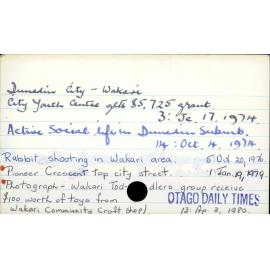 Dunedin City - Wakari
City Youth Centre gets $5,725 grant.
3: Je. 17. 1974.
Active Social life in Dunedin Suburb.
14: Oct. 4. 1974.
Rabbit shooting in Wakari area. 5: Oct. 20, 1976.
Pioneer Crescent top city street. 1: Jan. 19, 1979.
Photograph - Wakari Toddlers group receive
$100 worth of toys from OTAGO DAILY TIMES
Wakari Community Craft Shop). 13: Ap. 2, 1980.